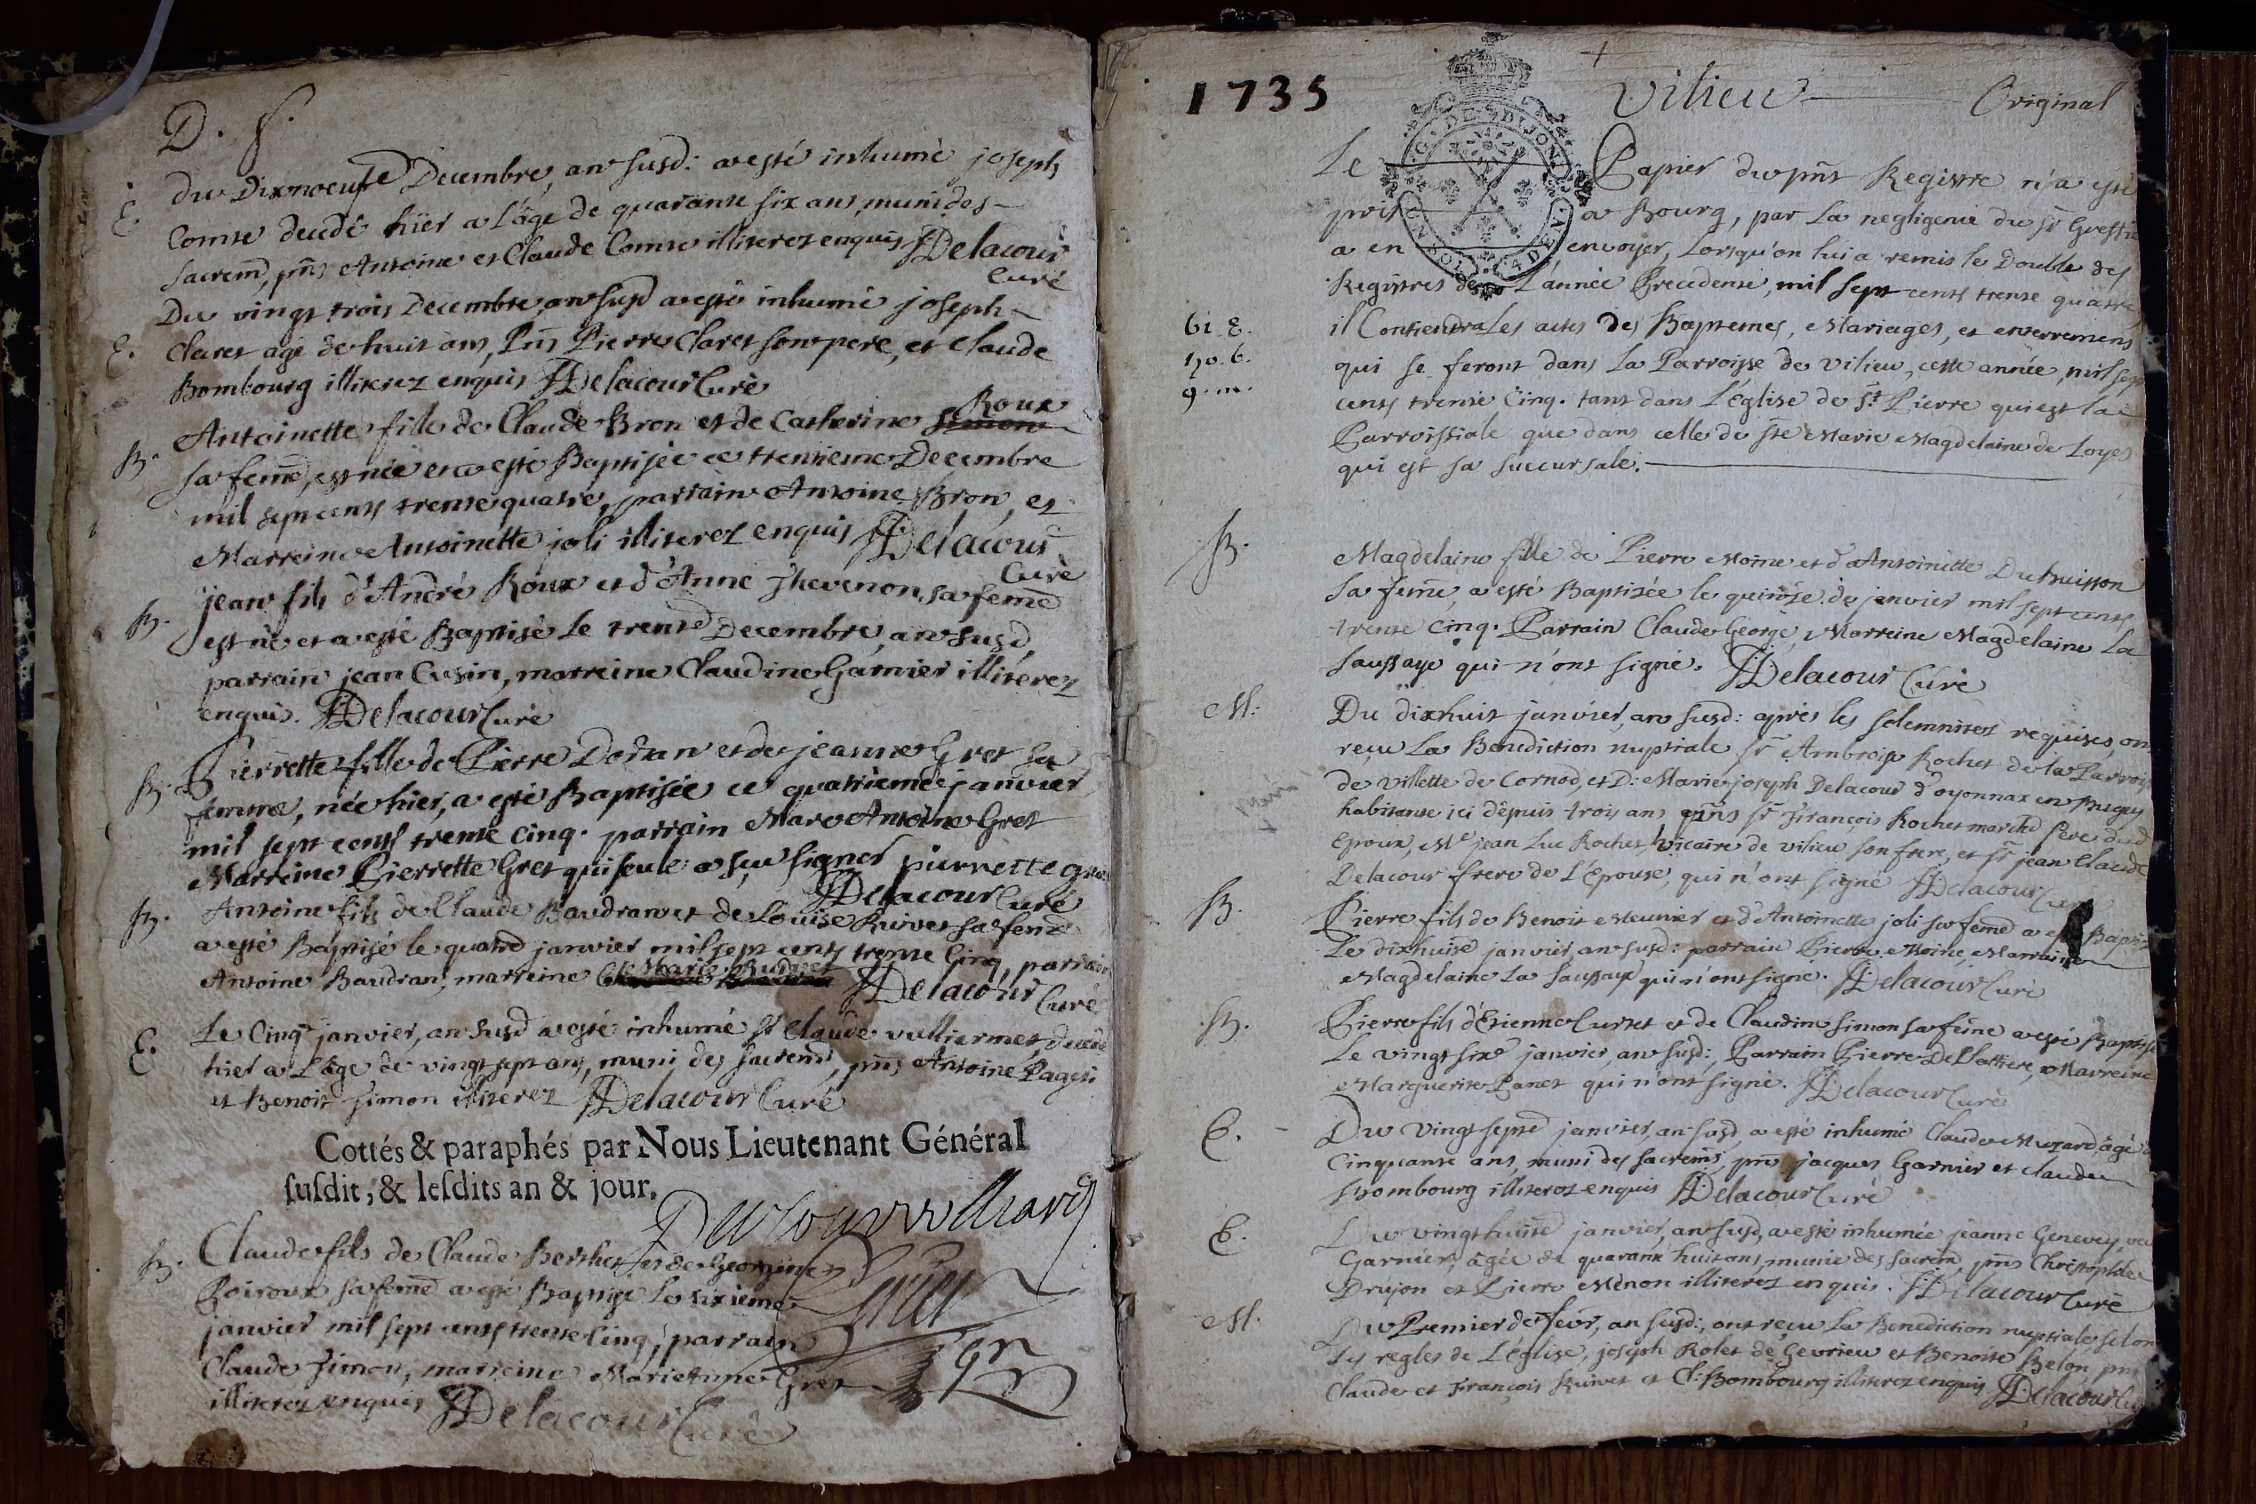 D. f.
E. du Dixnoeufe Decembre, an susd: a esté inhumé joseph
Comte decedé hïer a l'age de quarante six ans, muni des
sacremd, pñs Antoine et Claude Comte illiterez enquis JJDelacour
Curé
E. Du vingt trois Decembre an susd a esté inhumé joseph
Claret agé de huit ans, Pñs Pierre Claret son pere, et Claude
Bombourg illiterez enquis JJDelacour Curé
B. Antoinette fille de Claude Bron et de Catherine Roux
sa feme, est née et a esté Baptisée ce trentieme Decembre
mil sept cents trente quatre, parrain Antoine Bron, et
Marreine Antoinette joli illiterez enquis JJDelacour
Curé
B. jean fils d'André Roux et d'Anne Thevenon, sa feme
est né et a esté Baptisé le trente Decembre, an susd,
parrain jean Cusin, marreine Claudine Garnier illiterez
enquis. JJDelacour Curé
B. Pierrette fille de Pierre et de jeanne Gret sa
femme, née hier, a esté Baptisée ce quatrieme janvier
mil sept cents trente cinq. parrain Marc Antoine Gret
Marreine Pierrette Gret qui seule a sçu signer pierrette gret
JJDelacour Curé
B. Antoine fils de Claude Baudran et de Louise Ruivet sa feme
a esté Baptisé le quatre janvier mil sept cents trente cinq, parrain
Antoine Baudran, marreine Marie JJDelacour
Curé
E. Le Cinq janvier, an susd a esté inhumé sr Claude vulliermet, decedé
hier a l'age de vingt sept ans, muni des sacremd, pñs Antoine Pageti
et Benoit Simon illiterez JJDelacour Curé
Cottés & paraphés par Nous Lieutenant Général
susdit, & lesdits an & jour.
B. Claude fils de Claude Berthet et de Georgine
Poiroux sa feme a esté Baptisé le sixieme
janvier mil sept cents trente Cinq, parrain
Claude Simon, marreine Marie Gret
illiterez enquis JJDelacour Curé
1735
Vilieu Original
G. DE DIJON
Le Papier du pñt Registre n'a esté
pris a Bourg, par la negligence du sr Greffier
a en envoyer, Lorsqu'on lui a remis le Double des
Registres de L'année Precedente, mil sept cents trente quatre,
61. E.
50. b.
9. m.
il Contiendra les actes des Baptemes, Mariages, et enterremens
qui se feront dans la Parroisse de Vilieu, cette année, mil sept
cents trente Cinq. tant dans L'Eglise de St Pierre qui est la
Parroissiale que dans celle de ste Marie Magdelaine de Loyes
qui est sa succursale.
B. Magdelaine fille de Pierre Moine et d'Antoinette Dubuisson
sa feme, a esté Baptisée le quinze de janvier mil sept cents
trente cinq. Parrain Claude George, Marreine Magdelaine La
Saussaye qui n'ont signé. JJDelacour Curé
M: Du dixhuit janvier, an susd: aprés les solemnitez requises, ont
reçu la Benediction nuptiale, sr Ambroise Rochet de la Parroisse
de Villette de Cornod, et D: Marie joseph Delacour d'oyonnax en Bugey
habitante ici depuis trois ans pñs sr François Rochet marchd Pere dud
Epoux, Me jean Luc Rochet Vicaire de vilieu son frere, et sr jean Claude
Delacour frere de L'Epouse, qui n'ont signé JJDelacour Curé
B. Pierre fils de Benoit Meunier et d'Antoinette joli sa feme a esté Baptisé
Le dixhuite janvier, an susd: parrain Pierre Moine, Marraine
Magdelaine La Saussaye qui n'ont signé. JJDelacour Curé
B. Pierre fils d'Etienne Curtet et de Claudine Simon sa feme a esté Baptisé
Le vingt sixe janvier, an susd:, Parrain Pierre Dellattiere, Marreine
Marguerite Panet qui n'ont signé. JJDelacour Curé
E. Du vingt septe janvier, an susd, a esté inhumé Claude Muzard, âgé de
Cinquante ans, muni des sacremd, pñs jacques Garnier et Claude
Bombourg illiterez enquis JJDelacour Curé
E. Du vingt huite janvier, an susd, a esté inhumée jeanne Genevey, ve
Garnier, âgée de quarante huit ans, munie des sacrem, pñs Christophle
Drujon et Pierre Menon illiterez enquis. JJDelacour Curé
M. Du Premier de fevr, an susd:, ont reçu la Benediction nuptiale selon
les regles de L'Eglise, joseph Rolet de Gevrieu et Benoite Belon, pñs
Claude et François Ruivet et Cl: Bombourg illiterez enquis JJDelacour Curé